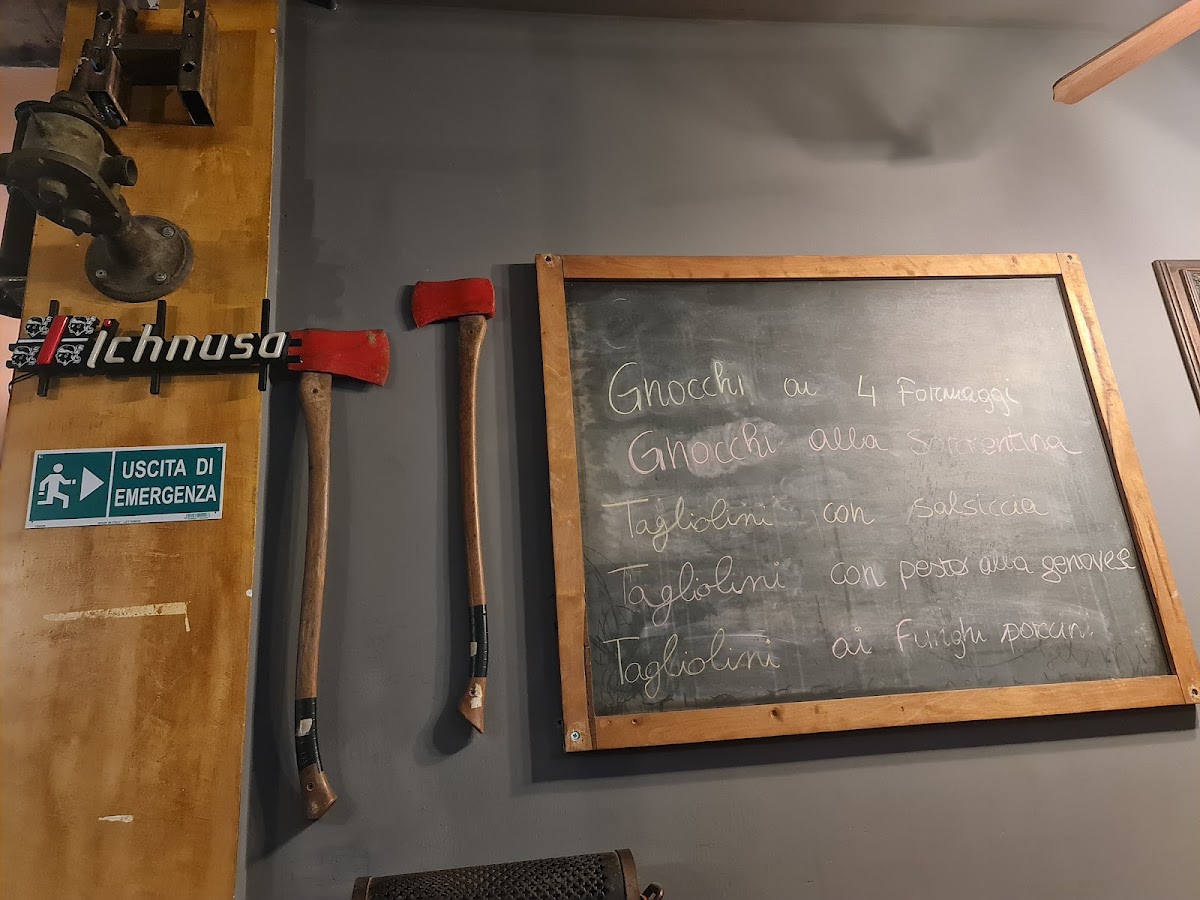 Ichnusa
USCITA DI
EMERGENZA
Gnocchi ai 4 Formaggi
Gnocchi alla Sorrentina
Tagliolini con salsiccia
Tagliolini con pesto alla genovese
Tagliolini ai Funghi porcini